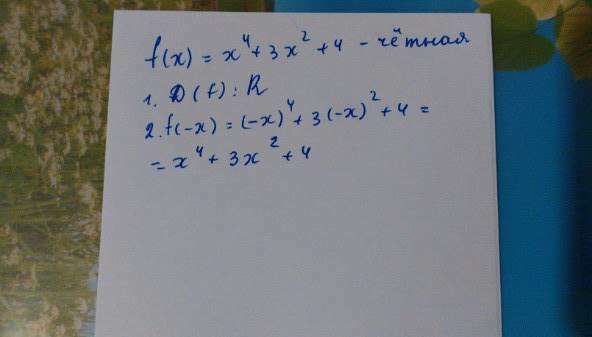 f(x) = x⁴ + 3x² + 4 - чётная
1. D(f): R
2. f(-x) = (-x)⁴ + 3(-x)² + 4 =
= x⁴ + 3x² + 4